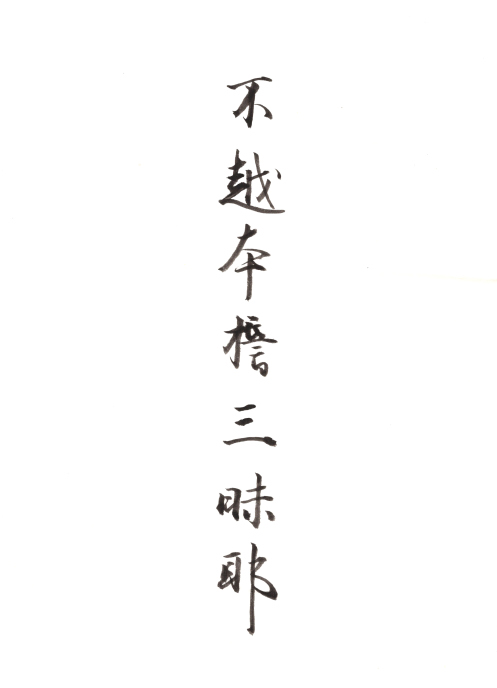 不越本誓三昧耶